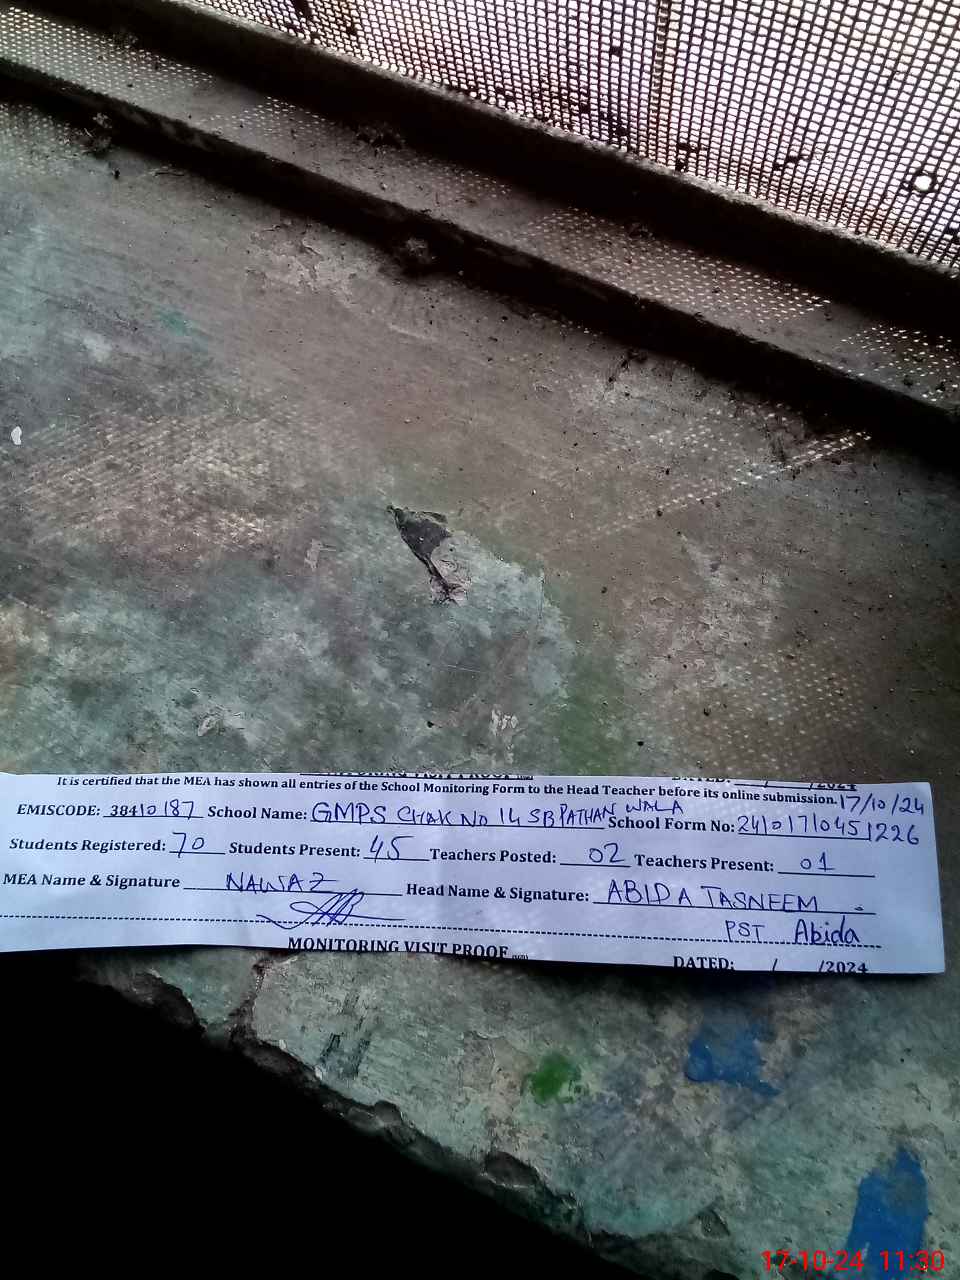 It is certified that the MEA has shown all entries of the School Monitoring Form to the Head Teacher before its online submission. 17/10/24
EMISCODE: 38410187 School Name: GMPS CHAK No 14 SB PATHAN WALA School Form No: 241017/045/226
Students Registered: 70 Students Present: 45 Teachers Posted: 02 Teachers Present: 01
MEA Name & Signature NAWAZ Head Name & Signature: ABIDA TASNEEM
PST Abida
MONITORING VISIT PROOF
DATED: / /2024
17-10-24 11:30